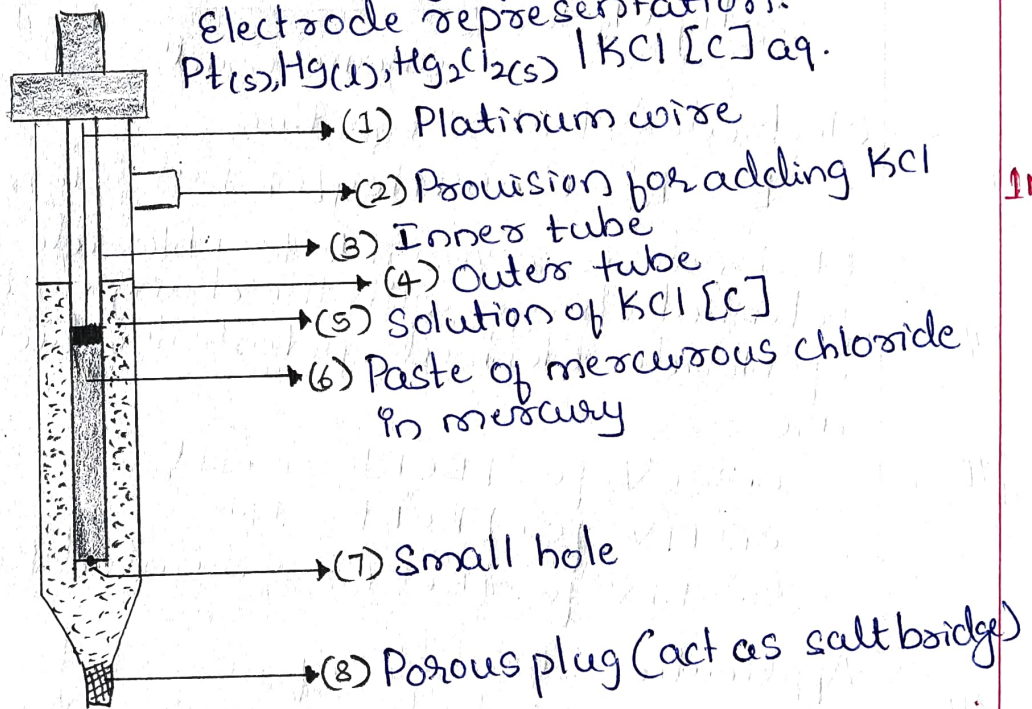 Electrode representation:
Pt(s), Hg(l), Hg₂Cl₂(s) | KCl [C] aq.
(1) Platinum wire
(2) Provision for adding KCl
(3) Inner tube
(4) Outer tube
(5) Solution of KCl [C]
(6) Paste of mercurous chloride
in mercury
(7) Small hole
(8) Porous plug (act as salt bridge)